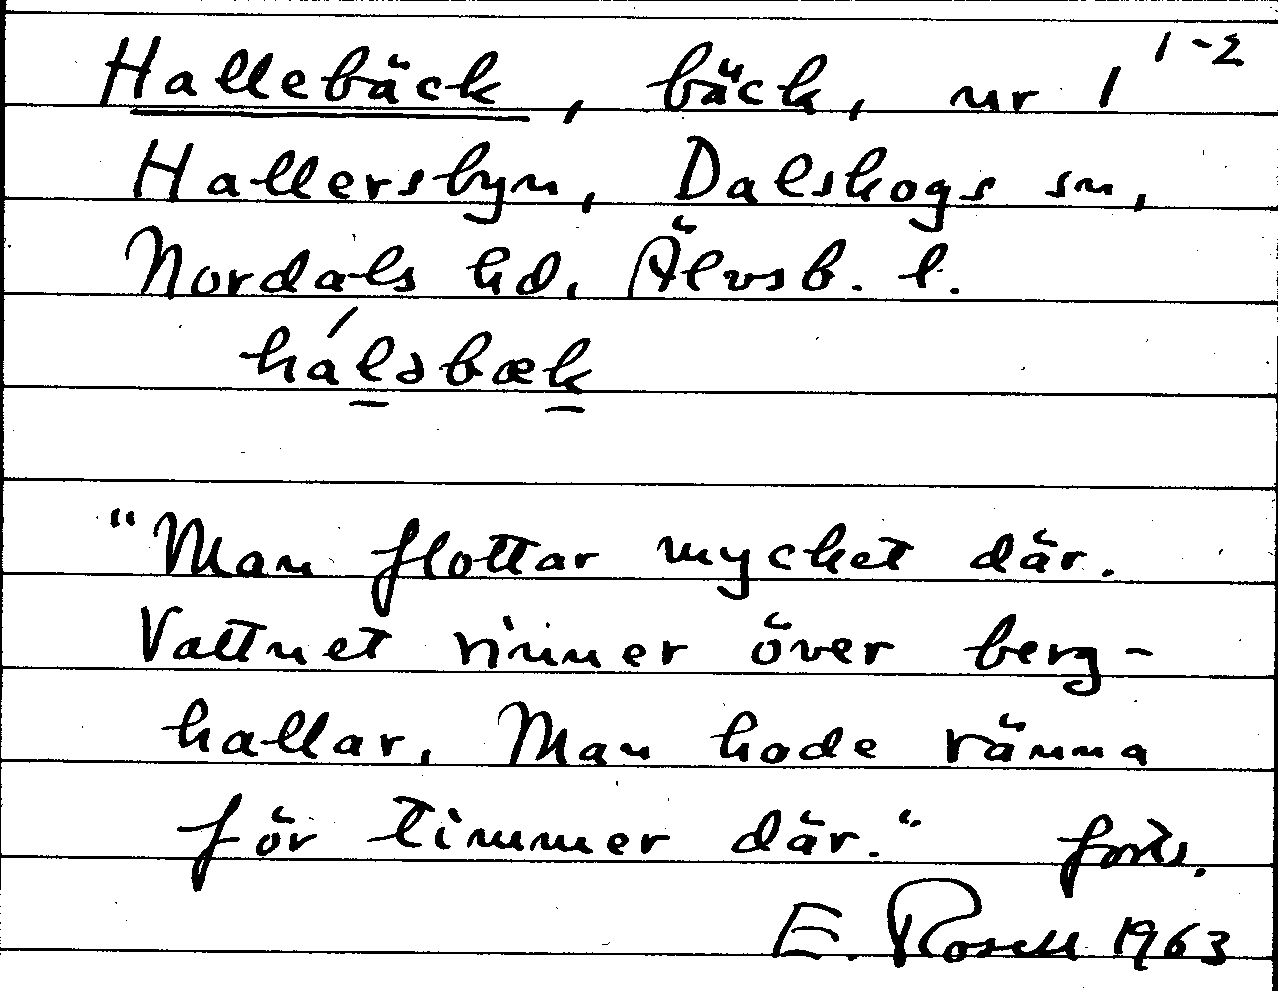 Hallebäck, bäck, nr 1 1-2
Hallersbyn, Dalskogs sn,
Nordals hd, Älvsb. l.
háləbæk
"Man flottar mycket där.
Vattnet rinner över berg-
hallar. Man hade ränna
för timmer där." forts.
E. Rosell 1963